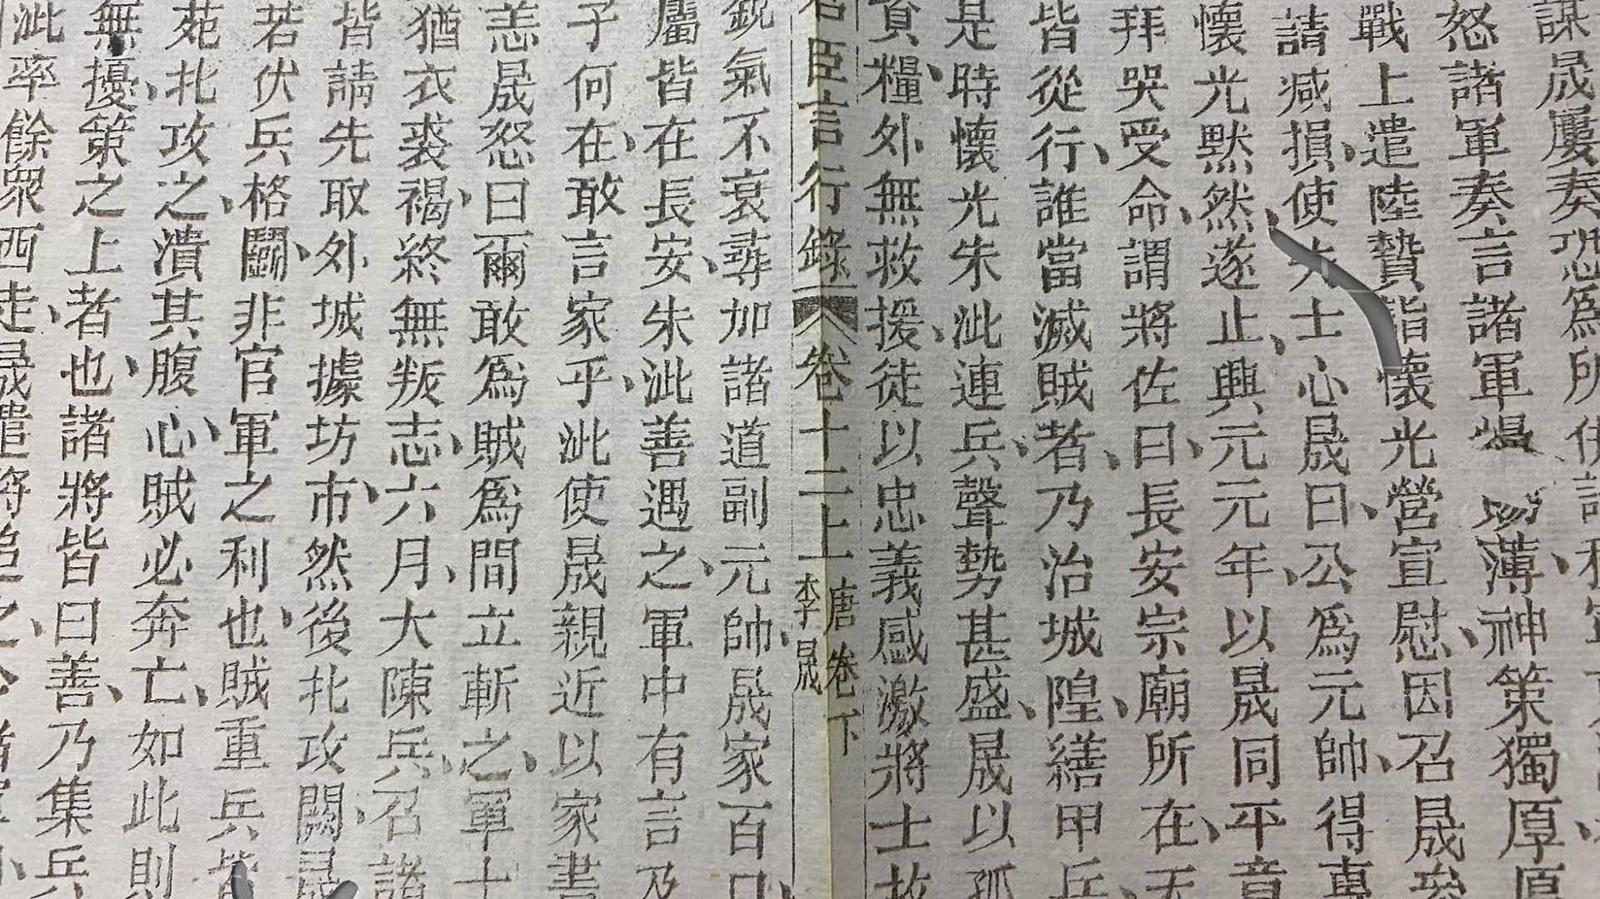 謀晟屢奏恐爲所併請移軍
怒諸軍奏言諸軍薄神策獨厚厚
戰上遣陸贄詣懷光營宣慰因召晟參
請減損使失士心晟曰公爲元帥得專
懷光黙然遂止興元元年以晟同平章
拜哭受命謂將佐曰長安宗廟所在天
皆從行誰當滅賊者乃治城隍繕甲兵
是時懷光朱泚連兵聲勢甚盛晟以孤
資糧外無救援徒以忠義感激將士故
名臣言行錄 卷十二上 唐卷下 李晟
銳氣不衰尋加諸道副元帥晟家百口
屬皆在長安朱泚善遇之軍中有言及
子何在敢言家乎泚使晟親近以家書
恙晟怒曰爾敢爲賊爲間立斬之軍士
猶衣裘褐終無叛志六月大陳兵召諸
皆請先取外城據坊市然後北攻闕晟
若伏兵格鬭非官軍之利也賊重兵皆
苑北攻之潰其腹心賊必奔亡如此則
無擾策之上者也諸將皆曰善乃集兵
泚率餘眾西走晟遣將追之